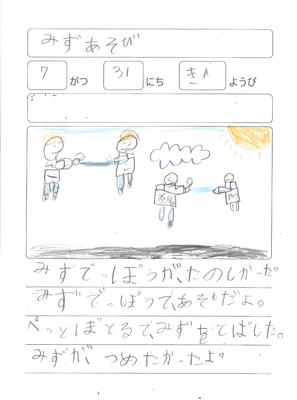 みずあそび
7 がつ 31 にち きん ようび
みずでっぽうが、たのしかった。
みずでっぽうで、あそんだよ。
ぺっとぼとるで、みずをとばした。
みずが、つめたかったよ。